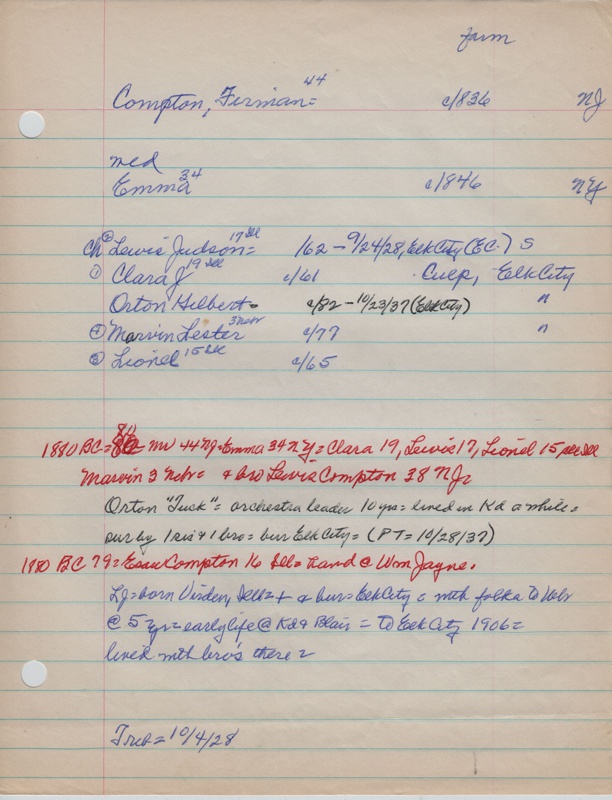 farm
Compton, Firman = 44 c/836 NJ
med
Emma 34 c/846 NY
Ch ② Lewis Judson = 17 Ill 162 - 9/24/28, Elk City (E.C.) S
① Clara J 19 Ill c/61 Culp, Elk City
Orton Hilbert = c/82 - 10/23/37 (Elk City) "
④ Marvin Lester 3 Nebr c/77 "
③ Lionel 15 Ill c/65
1880 BC = 80 mv 44 NJ = Emma 34 NY = Clara 19, Lewis 17, Lionel 15 all Ill
Marvin 3 Nebr = + bro Lewis Compton 38 NJ =
Orton "Tuck" = orchestra leader 10 yrs = lived in Kd a while =
sur by 1 sis & 1 bro = bur Elk City = (PT = 10/28/37)
1880 BC 79 = Esau Compton 16 Ill = hand @ Wm Jayne.
LJ = born Virden, Ill = + & bur = Elk City = wth folks to Nebr
@ 5 yrs = early life @ Kd & Blair = to Elk City 1906 =
lived wth bro's there =
Trib = 10/4/28